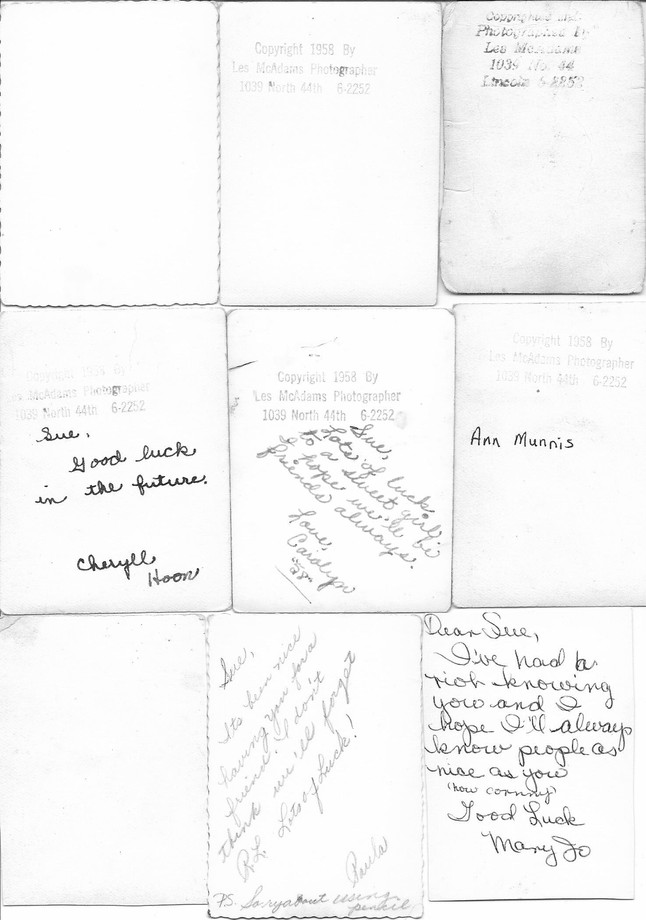 Copyright 1958 By
Les McAdams Photographer
1039 North 44th 6-2252
Photographed By
Les McAdams
1039 No. 44
Lincoln 6-2252
Copyright 1958 By
Les McAdams Photographer
1039 North 44th 6-2252
Sue,
Good luck
in the future.
Cheryll
Hoon
Copyright 1958 By
Les McAdams Photographer
1039 North 44th 6-2252
Sue,
Lots of luck
to a sweet girl.
I hope we'll be
friends always.
Love,
Carolyn
Copyright 1958 By
Les McAdams Photographer
1039 North 44th 6-2252
Ann Munnis
Sue,
Its been nice
having you for a
friend. I don't
think we'll forget
R.L. Lots of Luck!
Paula
P.S. Sorry about using
pencil
Dear Sue,
I've had a
riot knowing
you and I
hope I'll always
know people as
nice as you
(how cornny)
Good Luck
Mary Jo